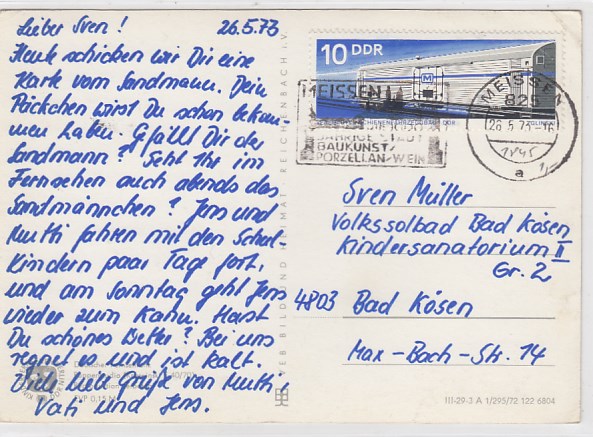 Lieber Sven! 26.5.73
Heute schicken wir Dir eine
Karte vom Sandmann. Dein
Päckchen wirst Du schon bekom-
men haben. Gefällt Dir der
Sandmann? Seht Ihr im
Fernsehen auch abends das
Sandmännchen? Jens und
Mutti fahren mit den Schul-
kindern paar Tage fort,
und am Sonntag geht Jens
wieder zum Kanu. Hast
Du schönes Wetter? Bei uns
regnet es und ist kalt.
Viele liebe Grüße von Mutti,
Vati und Jens.
EVP 0,15 M
VEB BILD UND HEIMAT REICHENBACH i. V.
10 DDR
MEISSEN
BAUKUNST
PORZELLAN-WEIN
MEISSEN
825
28.5.73-16
a
Sven Müller
Volkssolbad Bad Kösen
Kindersanatorium II
Gr. 2
4803 Bad Kösen
Max-Bach-Str. 14
III-29-3 A 1/295/72 122 6804